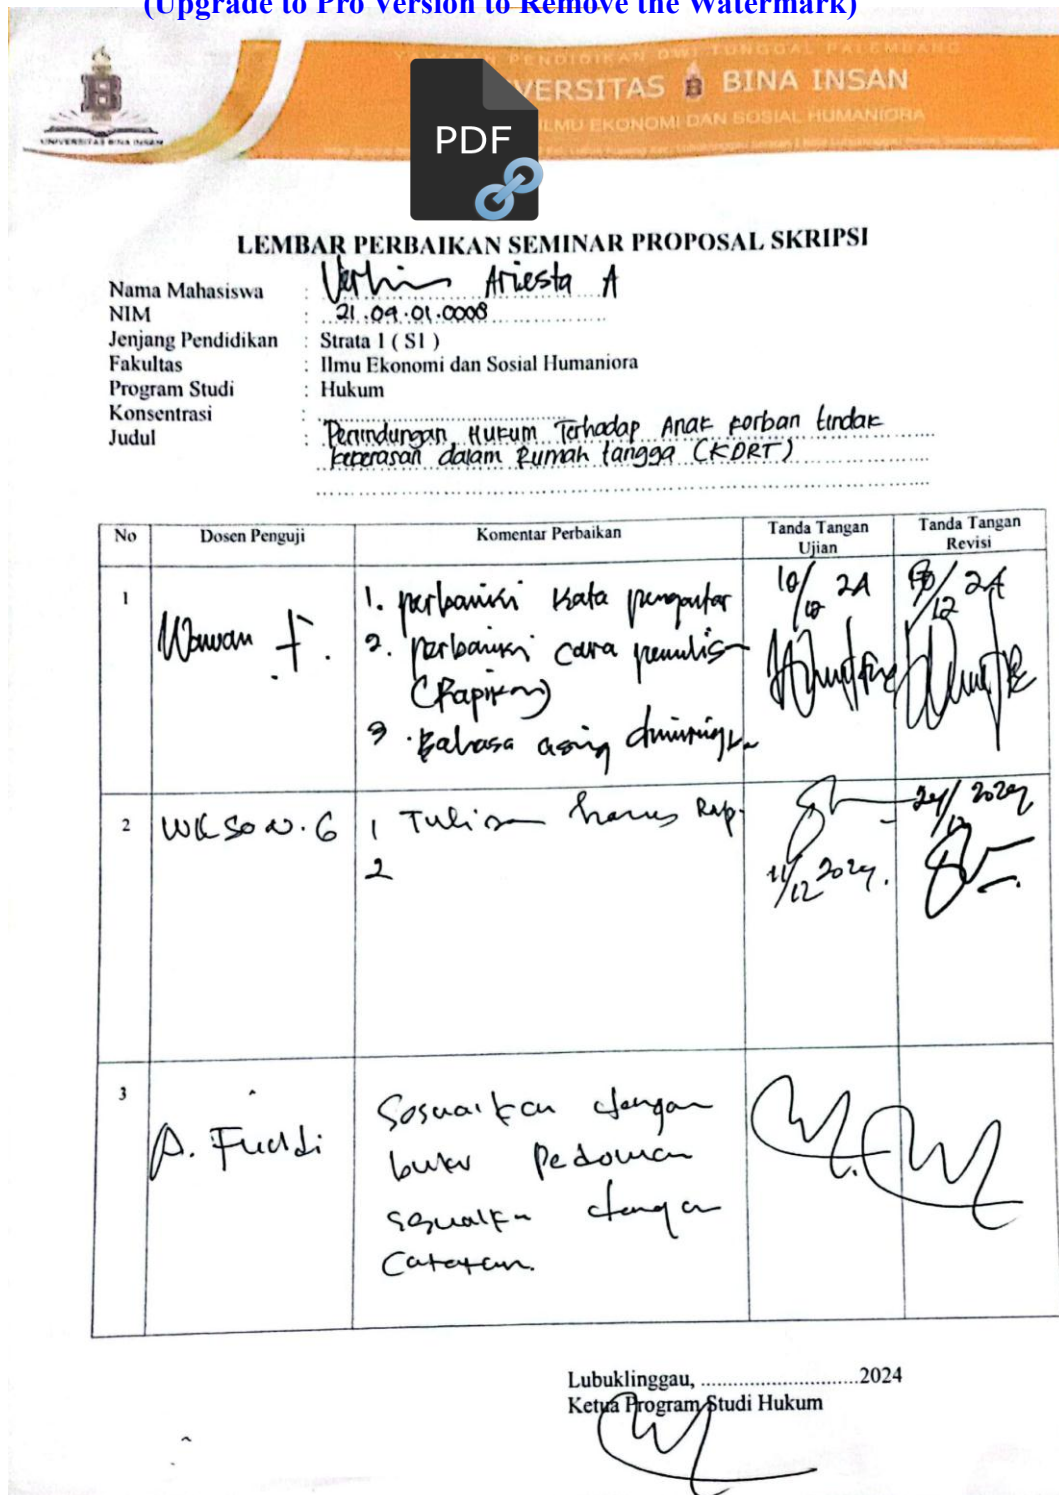 (Upgrade to Pro Version to Remove the Watermark)
PENDIDIKAN DWI TUNGGAL PALEMBANG
VERSITAS BINA INSAN
ILMU EKONOMI DAN SOSIAL HUMANIORA
UNIVERSITAS BINA INSAN
PDF
LEMBAR PERBAIKAN SEMINAR PROPOSAL SKRIPSI
Nama Mahasiswa : Ariesta A
NIM : 21.09.01.0008
Jenjang Pendidikan : Strata 1 ( S1 )
Fakultas : Ilmu Ekonomi dan Sosial Humaniora
Program Studi : Hukum
Konsentrasi :
Judul : Perlindungan Hukum Terhadap Anak korban tindak
kekerasan dalam Rumah tangga (KDRT)
No Dosen Penguji Komentar Perbaikan Tanda Tangan Ujian Tanda Tangan Revisi
1 Wawan F. 1. perbaiki kata pengantar 10/12 24
2. perbaiki cara penulisan
(Rapikan)
3. Bahasa asing dimiringkan
2 WILSON.G 1 Tulisan harus Rapi 11/12 2024. 24/12 2024
2
3 A. Fuadi Sesuaikan dengan
buku Pedoman
sesuaikan dengan
Catatan.
Lubuklinggau, ............................2024
Ketua Program Studi Hukum